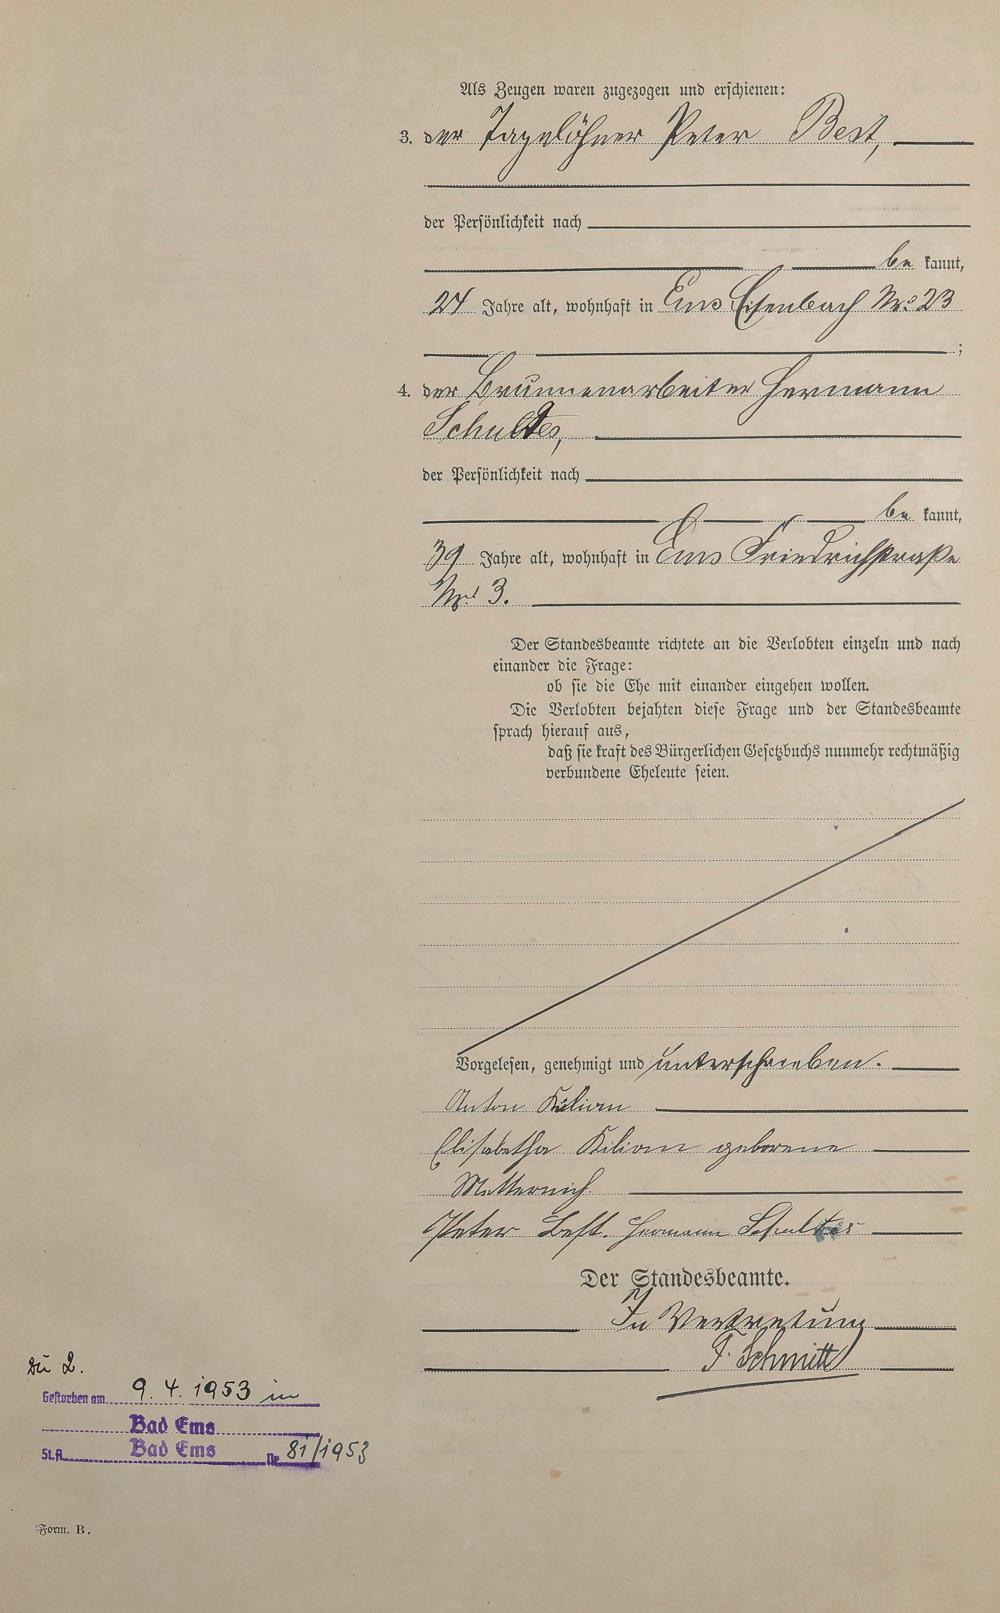 Als Zeugen waren zugezogen und erschienen:
3. der Tagelöhner Peter Best,
der Persönlichkeit nach
be kannt,
24 Jahre alt, wohnhaft in Ems Eisenbach No. 23
;
4. der Brunnenarbeiter Hermann
Schultes,
der Persönlichkeit nach
be kannt,
39 Jahre alt, wohnhaft in Ems Friedrichstraße
No. 3.
Der Standesbeamte richtete an die Verlobten einzeln und nach
einander die Frage:
ob sie die Ehe mit einander eingehen wollen.
Die Verlobten bejahten diese Frage und der Standesbeamte
sprach hierauf aus,
daß sie kraft des Bürgerlichen Gesetzbuchs nunmehr rechtmäßig
verbundene Eheleute seien.
Vorgelesen, genehmigt und unterschrieben.
Anton Kilian
Elisabetha Kilian geborene
Metternich.
Peter Best. Hermann Schultes
Der Standesbeamte.
In Vertretung
F. Schmitt
Zu 2.
Gestorben am 9. 4. 1953 in
Bad Ems
St.A. Bad Ems Nr. 81/1953
Form. B.